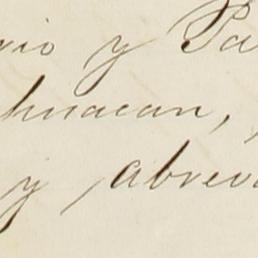 rio y Pa
huacan,
y abrev